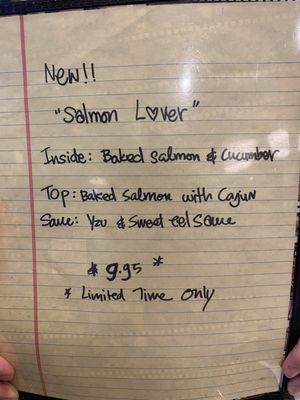 New!!
"Salmon L♥ver"
Inside: Baked Salmon & Cucumber
Top: Baked Salmon with Cajun
Sauce: Yzu & Sweet eel Sauce
$ 9.95 *
* Limited Time Only